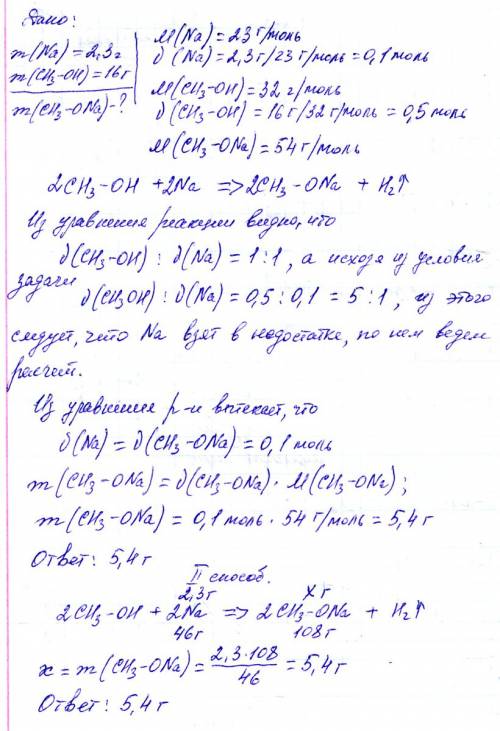 Дано:
m(Na) = 2,3г
m(CH3-OH) = 16г
m(CH3-ONa) - ?
M(Na) = 23 г/моль
∂(Na) = 2,3г/23 г/моль = 0,1 моль
M(CH3-OH) = 32 г/моль
∂(CH3-OH) = 16 г/32 г/моль = 0,5 моль
M(CH3-ONa) = 54 г/моль
2CH3-OH + 2Na => 2CH3-ONa + H2↑
Из уравнения реакции видно, что
∂(CH3-OH) : ∂(Na) = 1:1, а исходя из условия
задачи
∂(CH3OH) : ∂(Na) = 0,5 : 0,1 = 5:1, из этого
следует, что Na взят в недостатке, по нем ведем
расчет.
Из уравнения р-и вытекает, что
∂(Na) = ∂(CH3-ONa) = 0,1 моль
m(CH3-ONa) = ∂(CH3-ONa) · M(CH3-ONa);
m(CH3-ONa) = 0,1 моль · 54 г/моль = 5,4 г
Ответ: 5,4 г
II способ.
2,3г xг
2CH3-OH + 2Na => 2CH3-ONa + H2↑
46г 108г
x = m(CH3-ONa) = 2,3·108/46 = 5,4 г
Ответ: 5,4 г